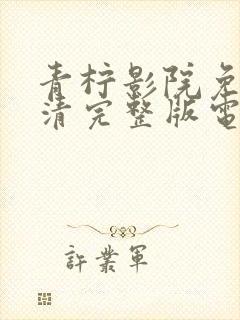 青柠影院免
清完整版電
許業軍